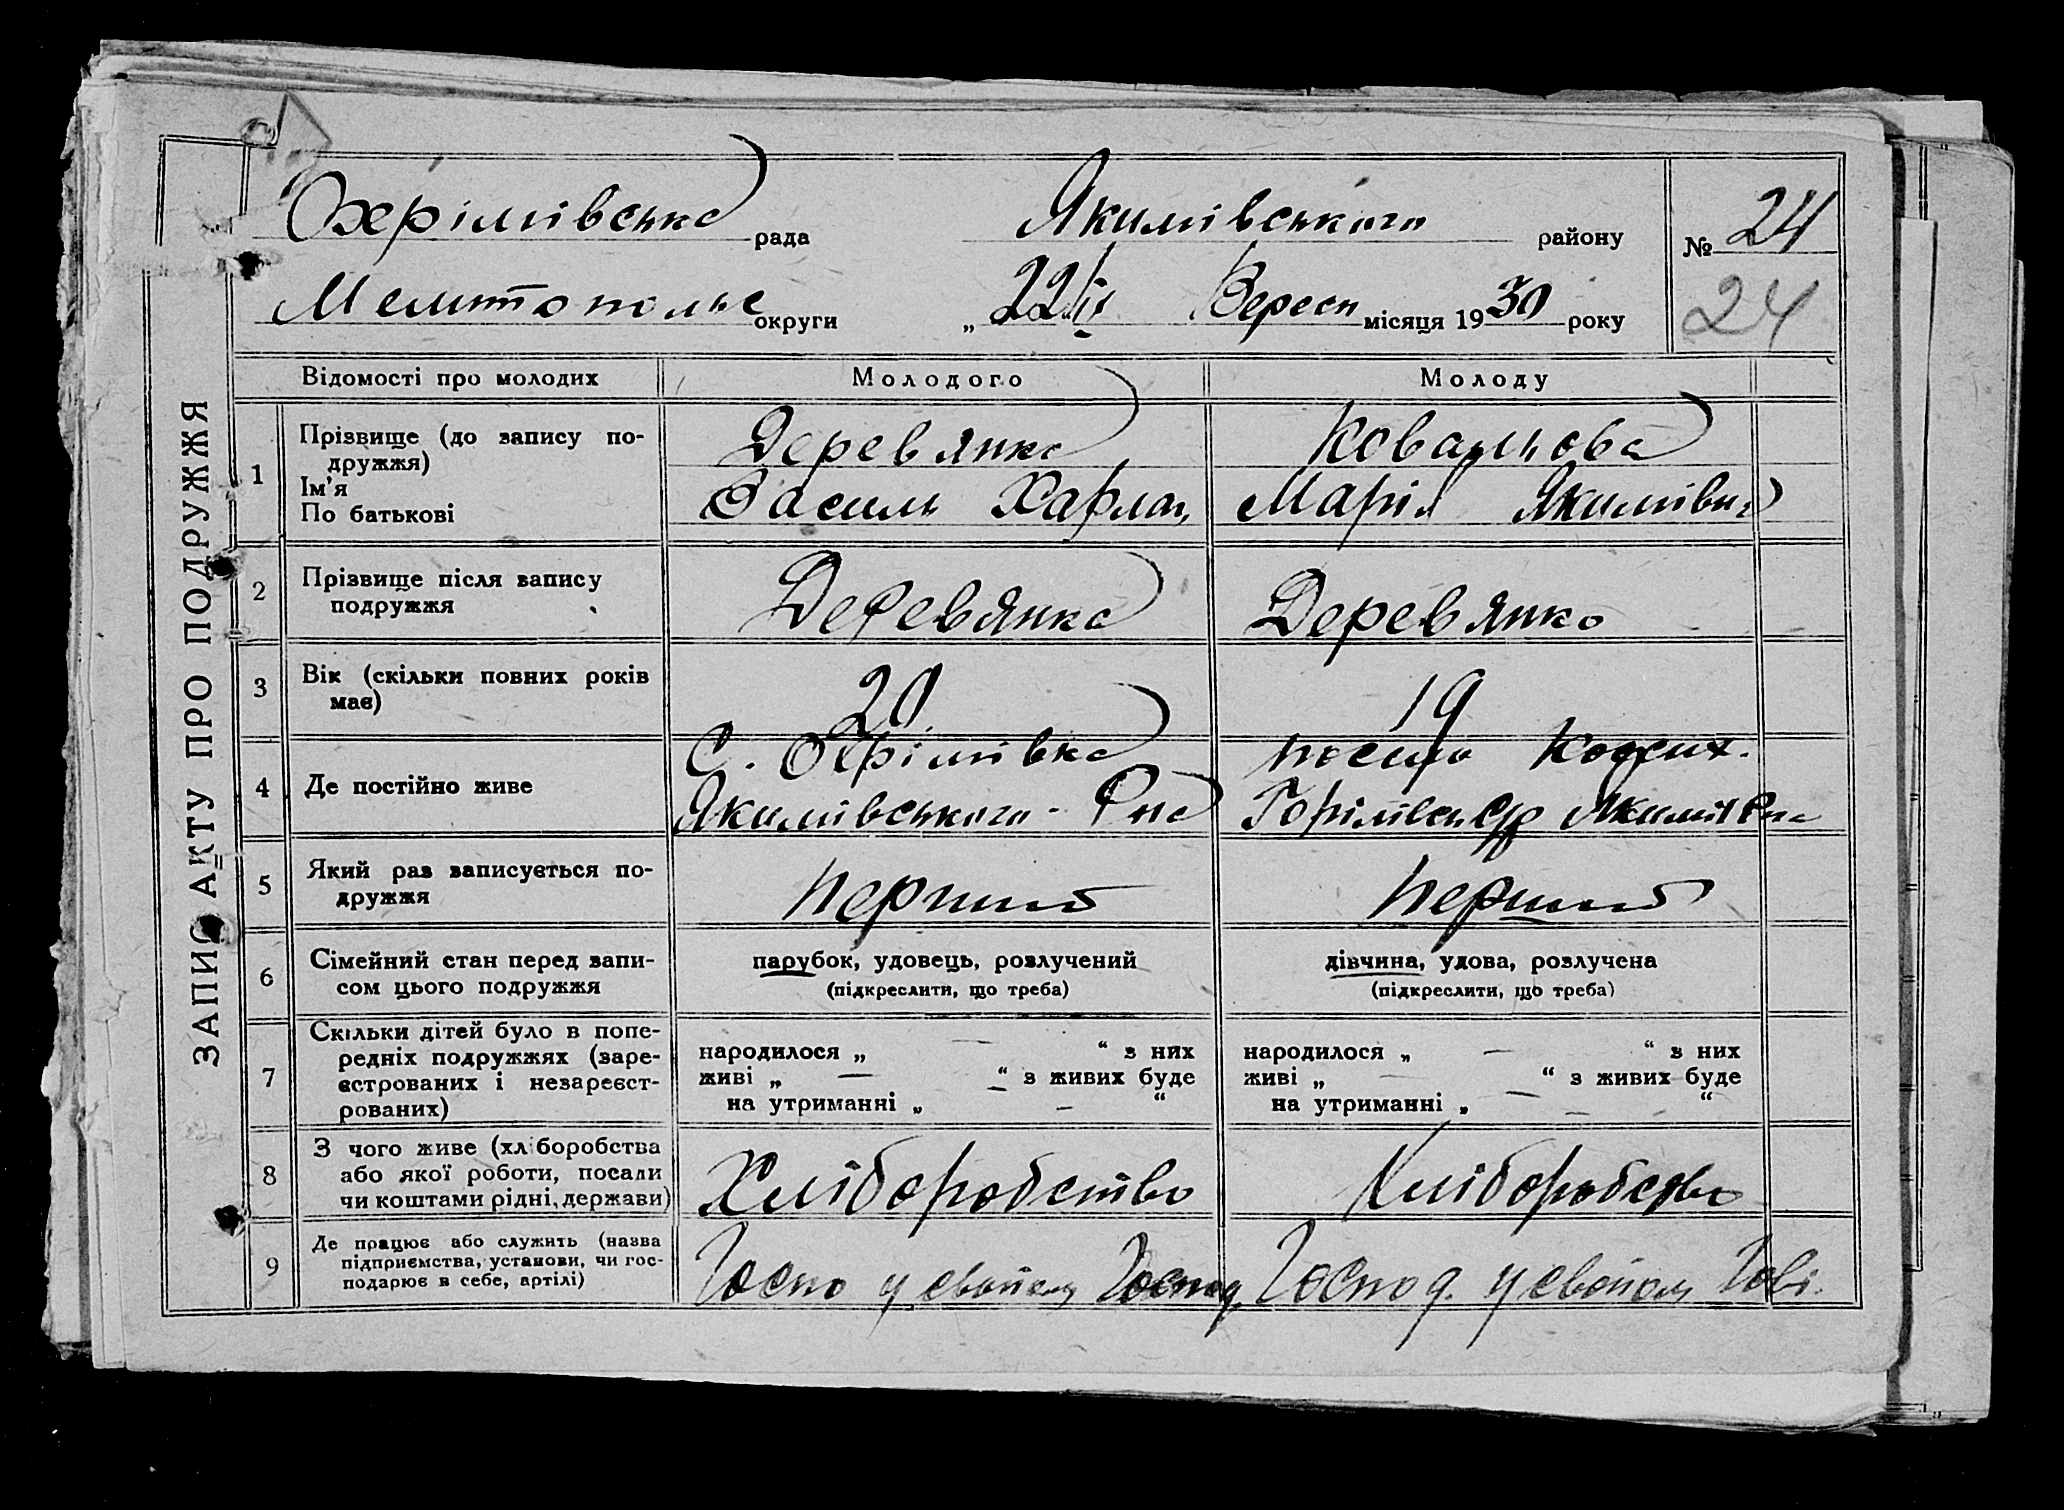 ЗАПИС АКТУ ПРО ПОДРУЖЖЯ
Охрімівська рада Якимівського району № 24
Мелитопольс округи „ 22 Вересн місяця 1930 року 24
Відомості про молодих Молодого Молоду
1 Прізвище (до запису по-
дружжя) Деревянко Ковальова
Ім'я
По батькові Василь Харлам, Марія Якимівна
2 Прізвище після запису
подружжя Деревянко Деревянко
3 Вік (скільки повних років
має) 20 19
4 Де постійно живе С. Охрімівка
Якимівського - Р-на Якимів Р-на
5 Який раз записується по-
дружжя перший перший
6 Сімейний стан перед запи-
сом цього подружжя
парубок, удовець, розлучений дівчина, удова, розлучена
(підкреслити, що треба) (підкреслити, що треба)
7 Скільки дітей було в попе-
редніх подружжях (заре-
єстрованих і незареєст-
рованих)
народилося „ — “ з них народилося „ — “ з них
живі „ — “ з живих буде живі „ — “ з живих буде
на утриманні „ — “ на утриманні „ — “
8 З чого живе (хліборобства
або якої роботи, посади
чи коштами рідні, держави) Хліборобство Хліборобство
9 Де працює або служить (назва
підприємства, установи, чи гос-
подарює в себе, артілі)
Госпо у свойому Господ. Господ. у свойому